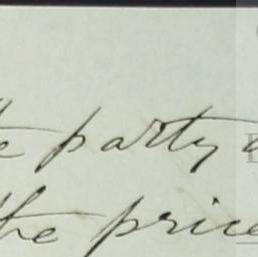 party
the price